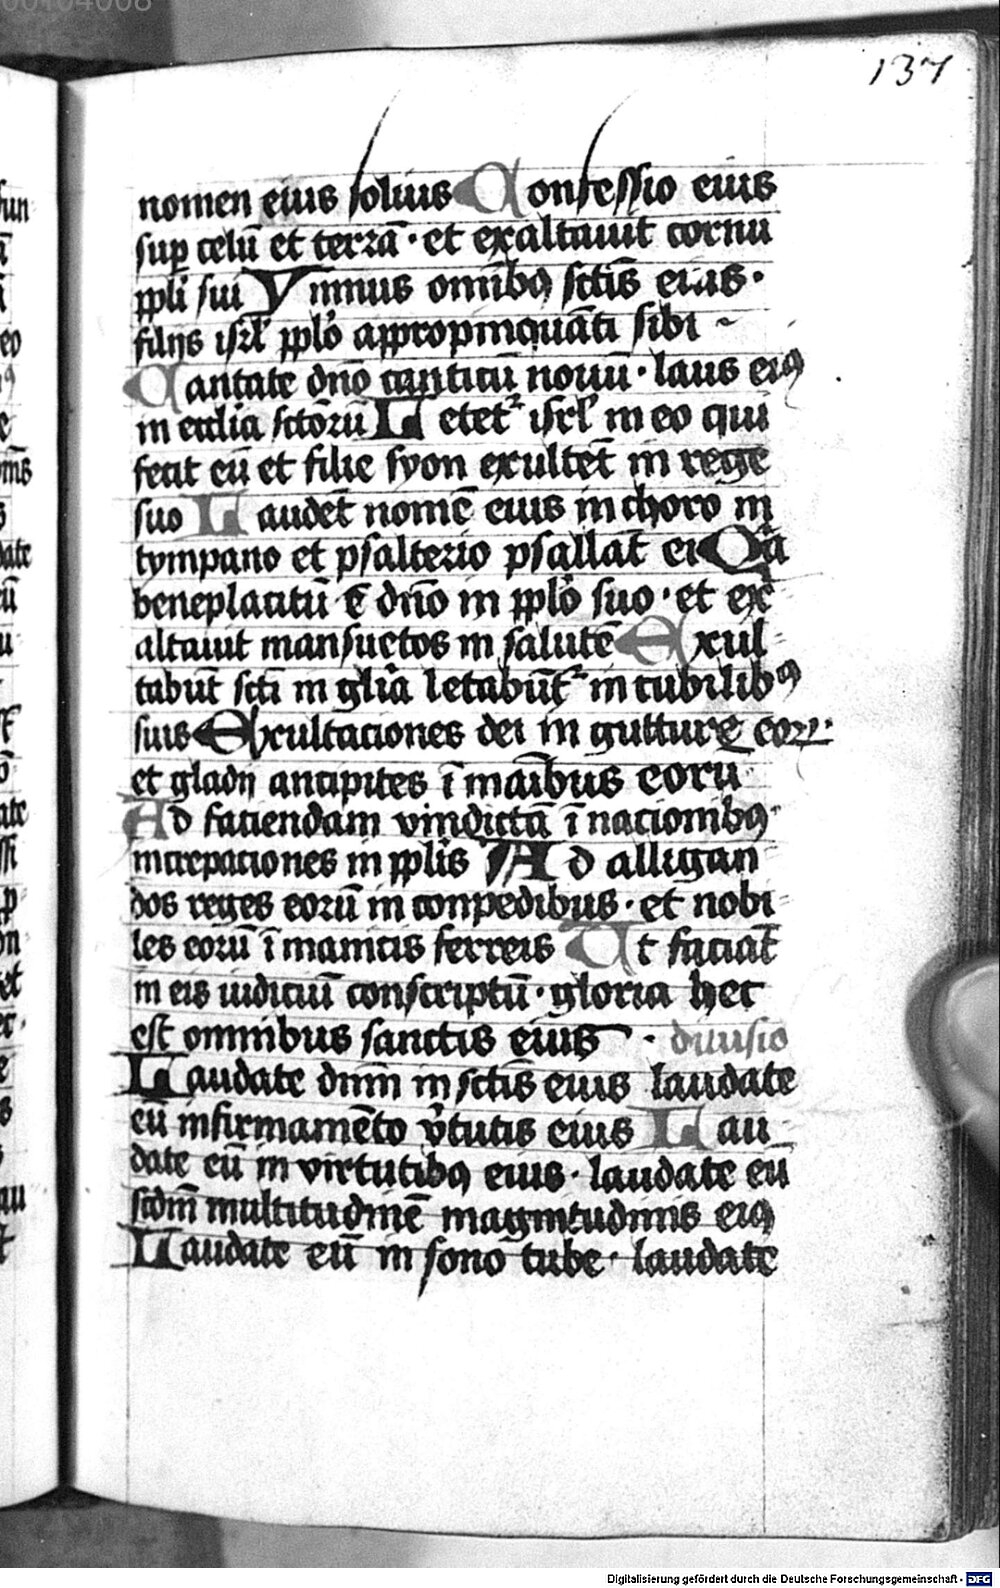 137
nomen eius solius Confessio eius
sup celū et terrā · et exaltauit cornu
ppli sui Ymnus omībꝯ sctīs eius ·
filijs isrl pplo appropinquāti sibi ~
Cantate dño canticū nouū · laus eiꝯ
in ecclīa sctōrū Letet᷑ isrl in eo qui
fecit eū et filie syon exultēt in rege
suo Laudēt nomē eius in choro in
tympano et psalterio psallāt ei Qa
beneplacitū ē dño in pplo suo · et ex
altauit mansuetos in salutē Exul
tabūt scti in glīa letabūt᷑ in cubilibꝯ
suis Exultaciones dei in gutture eoꝝ ·
et gladij ancipites ī maībus eorū
Ad faciendam vindictā ī nacionibꝯ
increpaciones in pplis Ad alligan
dos reges eorū in conpedibus · et nobi
les eorū ī manicis ferreis Ut faciāt
in eis iudiciū conscriptū · gloria hec
est omnibus sanctis eius · diuisio
Laudate dnm in sctīs eius laudate
eū in firmamēto v̄tutis eius Lau
date eū in virtutibꝯ eius · laudate eū
scdm multitudinē magnitudinis eiꝯ
Laudate eū in sono tube · laudate
Digitalisierung gefördert durch die Deutsche Forschungsgemeinschaft - DFG